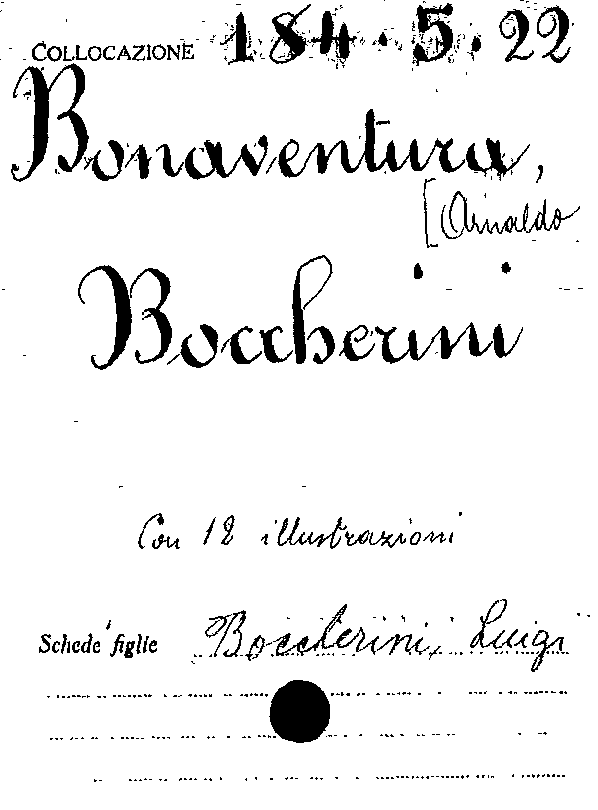 COLLOCAZIONE 184.5.22
Bonaventura,
[Arnaldo
Boccherini
Con 12 illustrazioni
Schede figlie Boccherini, Luigi